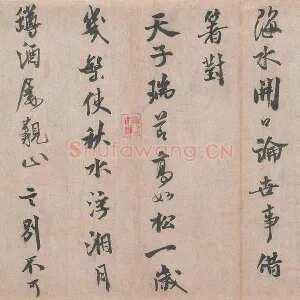 海水開口論世事借
箸對
天子瑞芝高如松一歲
幾槃使秋水浮湘月
蹲酒為觀山之別不可
Shufawang.CN